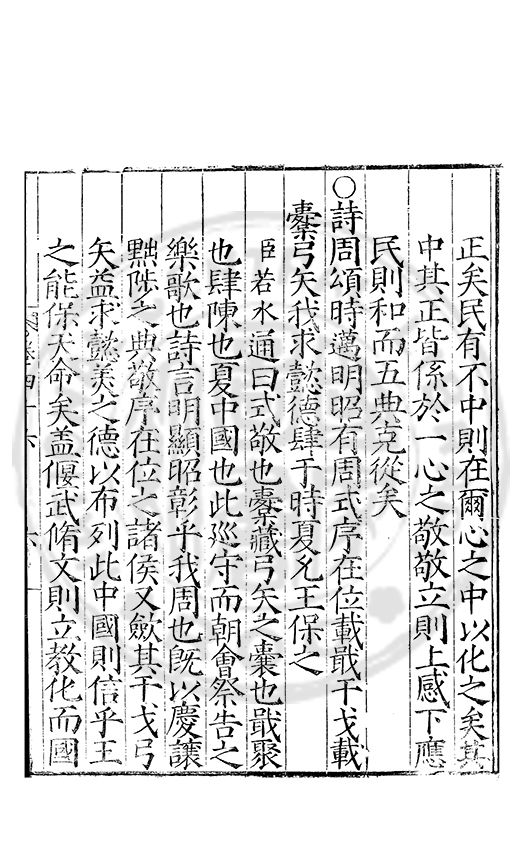 正矣民有不中則在爾心之中以化之矣其
中其正皆係於一心之敬敬立則上感下應
民則和而五典克從矣
○詩周頌時邁明昭有周式序在位載戢干戈載
櫜弓矢我求懿德肆于時夏允王保之
臣若水通曰式敬也櫜藏弓矢之囊也戢聚
也肆陳也夏中國也此巡守而朝會祭告之
樂歌也詩言明顯昭彰乎我周也旣以慶讓
黜陟之典敬序在位之諸侯又斂其干戈弓
矢益求懿美之德以布列此中國則信乎王
之能保天命矣盖偃武脩文則立教化而國
卷四十六 六